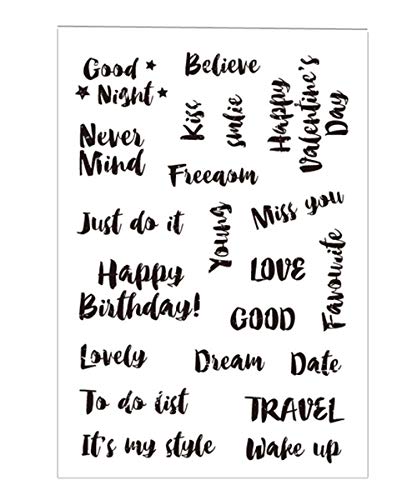 Good
Night
Believe
Kiss
smlie
Happy
Valentine's
Day
Never
Mind
Freeaom
Just do it
Young
Miss you
Happy
Birthday!
LOVE
Favourite
GOOD
Lovely
Dream
Date
To do list
TRAVEL
It's my style
Wake up